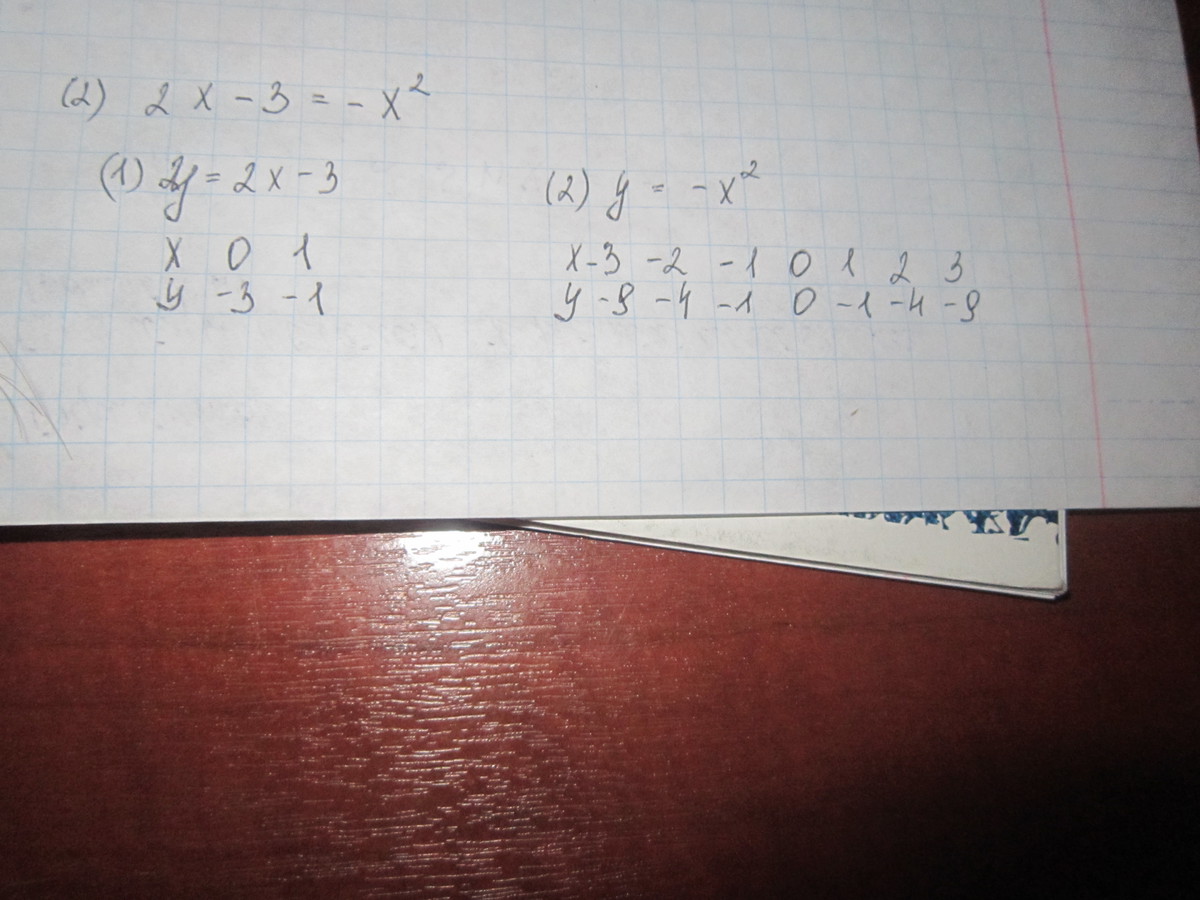 (2) 2x - 3 = -x²
(1) 2y = 2x - 3 (2) y = -x²
x 0 1 x -3 -2 -1 0 1 2 3
y -3 -1 y -9 -4 -1 0 -1 -4 -9